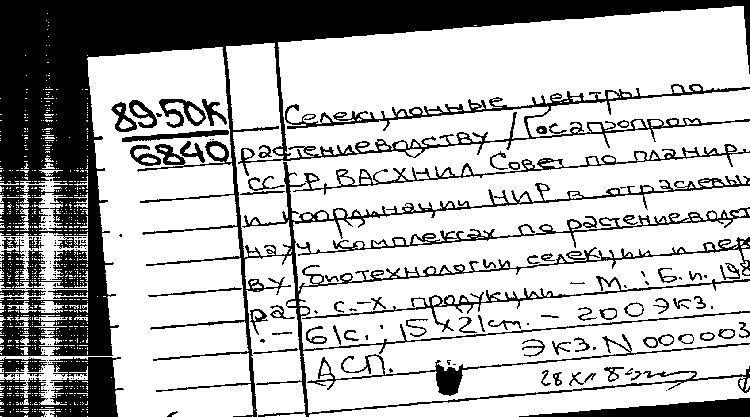 89-50К
6840
Селекционные центры по
растениеводству / Госагропром
СССР, ВАСХНИЛ, Совет по планир.
и координации НИР в отраслевых
науч. комплексах по растениеводст
ву, биотехнологии, селекции и пер
раб. с.-х. продукции. - М. : Б.и., 198
. - 61с. ; 15 х 21 cm. - 200 экз.
Экз. N 000003
ДСП.
28 XII